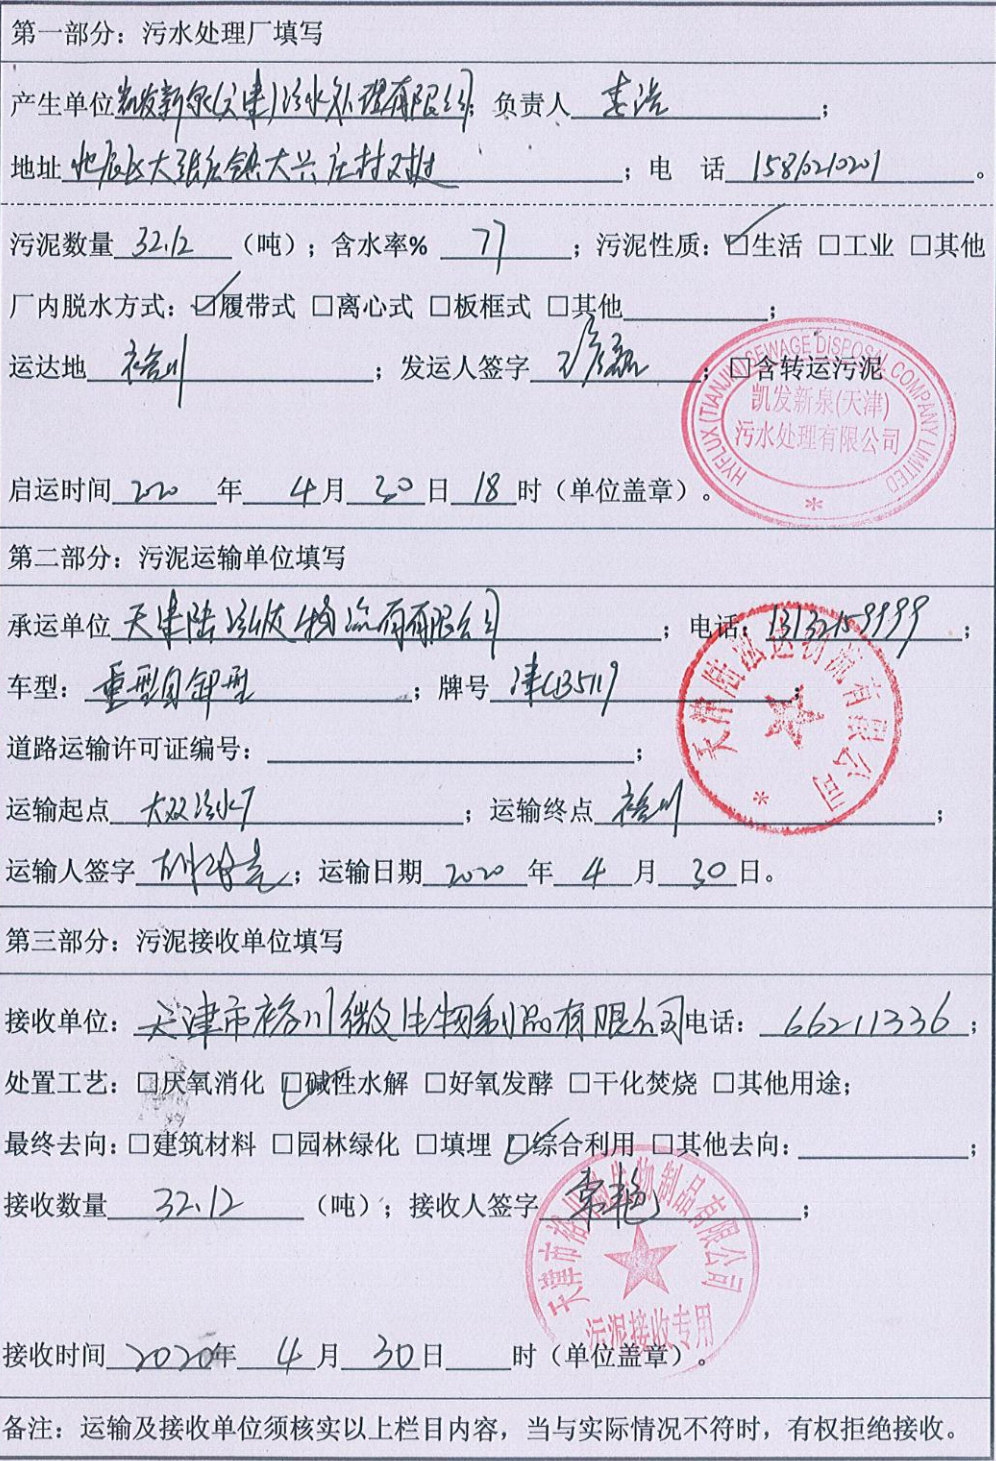 第一部分：污水处理厂填写
产生单位凯发新泉(天津)污水处理有限公司；负责人 李浩；
地址 北辰区大张庄镇大兴庄村对过；电 话 15810210201。
污泥数量 32.12 （吨）；含水率% 77；污泥性质：☑生活 □工业 □其他
厂内脱水方式：☑履带式 □离心式 □板框式 □其他；
运达地 裕川；发运人签字；□含转运污泥
HYFLUX (TIANJIN) SEWAGE DISPOSAL COMPANY LIMITED
凯发新泉(天津)
污水处理有限公司
启运时间 2020 年 4月 30日 18时（单位盖章）。
第二部分：污泥运输单位填写
承运单位 天津陆泓达物流有限公司；电话：13132159999；
车型：重型自卸型；牌号 津CB5119；
天津陆泓达物流有限公司
道路运输许可证编号：；
运输起点 大双污水厂；运输终点 裕川；
运输人签字；运输日期 2020 年 4 月 30日。
第三部分：污泥接收单位填写
接收单位：天津市裕川微生物制品有限公司电话：66211336；
处置工艺：□厌氧消化 ☑碱性水解 □好氧发酵 □干化焚烧 □其他用途；
最终去向：□建筑材料 □园林绿化 □填埋 ☑综合利用 □其他去向：；
接收数量 32.12 （吨）；接收人签字；
天津市裕川微生物制品有限公司
污泥接收专用
接收时间 2020年 4月 30日 时（单位盖章）。
备注：运输及接收单位须核实以上栏目内容，当与实际情况不符时，有权拒绝接收。